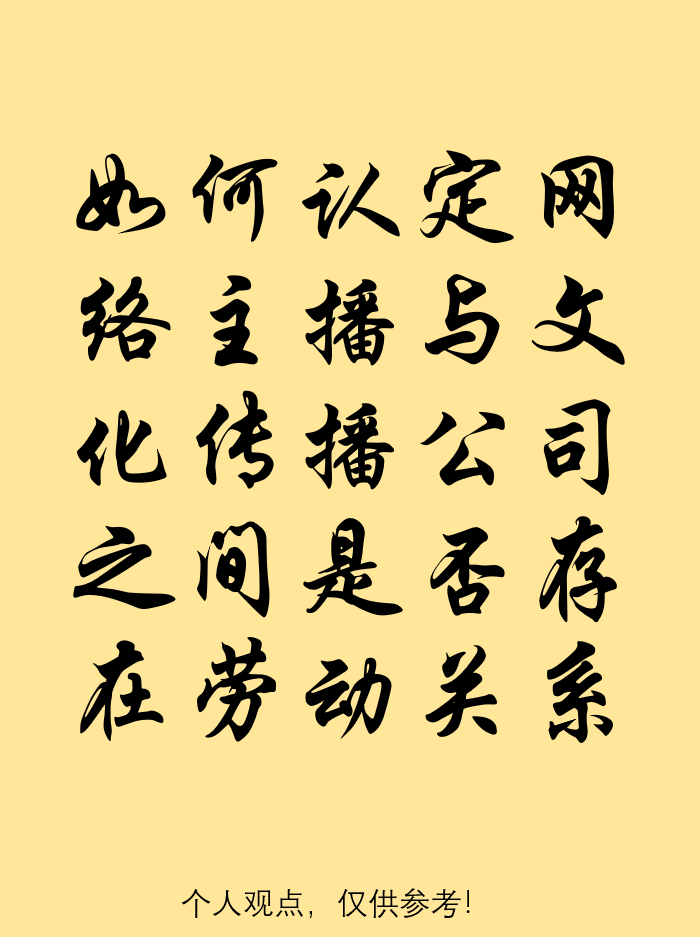 如何认定网
络主播与文
化传播公司
之间是否存
在劳动关系
个人观点，仅供参考！